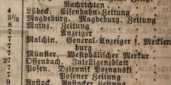 Nachrichten
4 Lübeck. Eisenbahn-Zeitung
3½ Magdeburg. Magdeburg. Zeitung
8 Mainz. Zeitung
2 Anzeiger
4 Malchin. General-Anzeiger f. Mecklen
burg
7 Münster. Westfälischer Merkur
27 Offenbach. Intelligenzblatt
7 Posen. Dziennik Poznański
7 Posener Zeitung
9 Rostock. Rostocker Zeitung